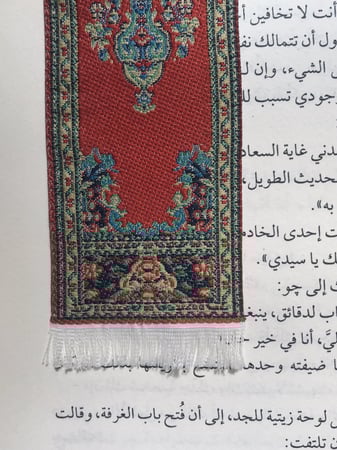 أنت لا تخافين أ
ول أن تتمالك نف
ى الشيء، وإن ل
وجودي تسبب لل
دني غاية السعاد
حديث الطويل،
به».
ت إحدى الخاده
ك يا سيدي».
ك إلى چو:
اب لدقائق، ينبغ
ليَّ، أنا في خير -
ا ضيفته وحدها
ى لوحة زيتية للجد، إلى أن فُتح باب الغرفة، وقالت
ن تلتفت: